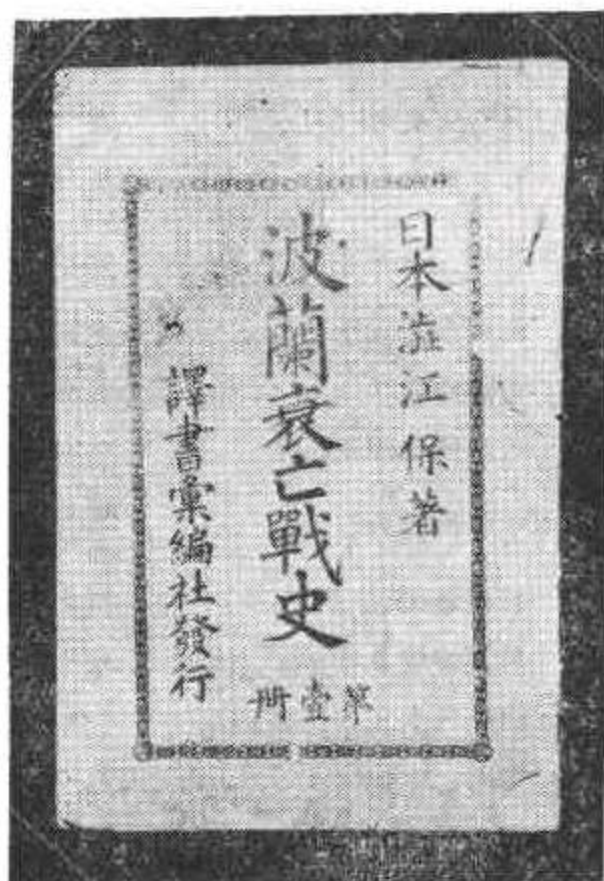 日本澁江保著
波蘭衰亡戰史
第壹冊
譯書彙編社發行